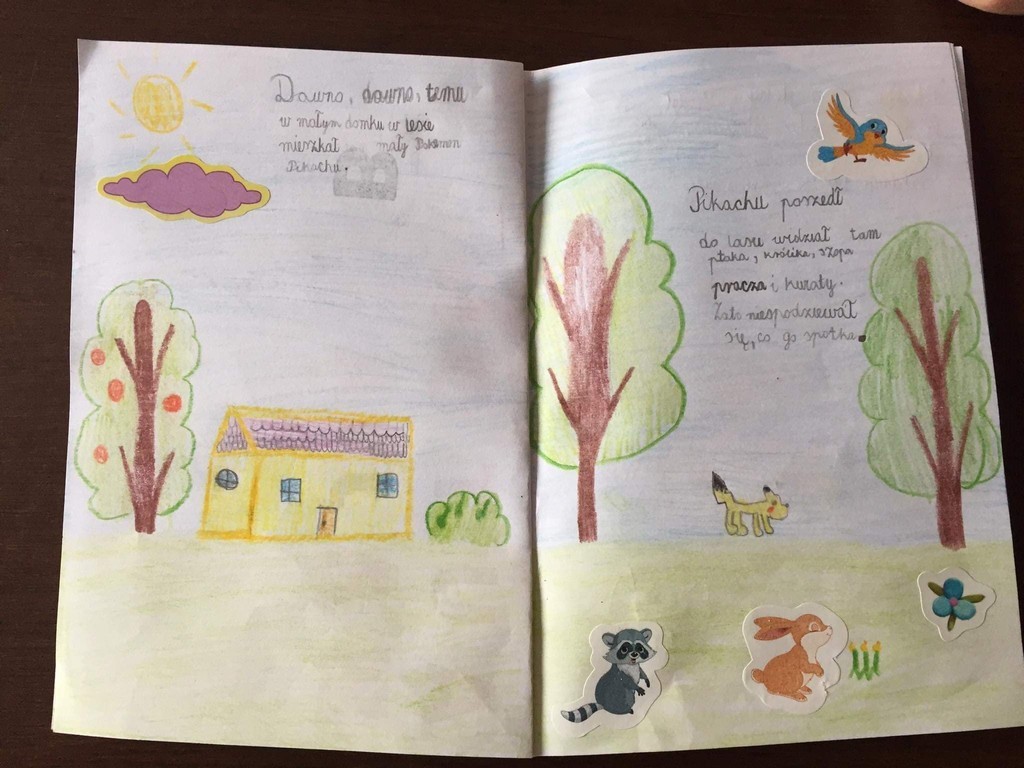 Dawno, dawno, temu
w małym domku w lesie
mieszkał mały Pokemon
Pikachu.
Pikachu poszedł
do lasu widział tam
ptaka, królika, szopa
pracza i kwiaty.
Zato niespodziewał
się, co go spotka.